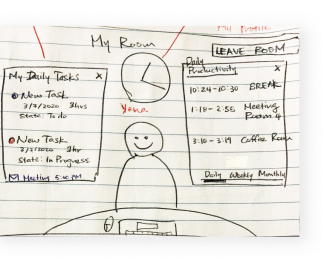 My Profile
My Room
LEAVE ROOM
My Daily Tasks X
New Task
3/3/2020 3hrs
State: To do
New Task
3/3/2020 2hr
State: In Progress
Meeting 5:00 PM
Yana
Daily
Productivity X
10:24-10:30 BREAK
1:18- 2:55 Meeting
Room 4
3:10 - 3:19 Coffee Room
Daily Weekly Monthly